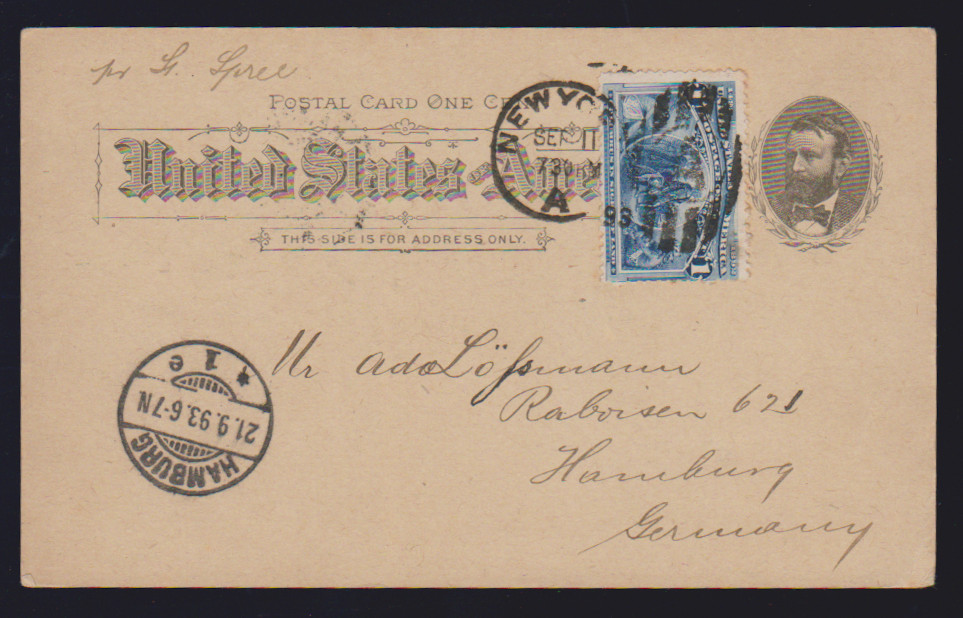 pr St. Spree
POSTAL CARD ONE CE
United States Ame
THIS SIDE IS FOR ADDRESS ONLY.
NEW YO
SEP 11
730
A
93
1
Mr Ado Lößmann
Raboisen 621
Hamburg
Germany
HAMBURG
21.9.93.6-7N
* 1 e